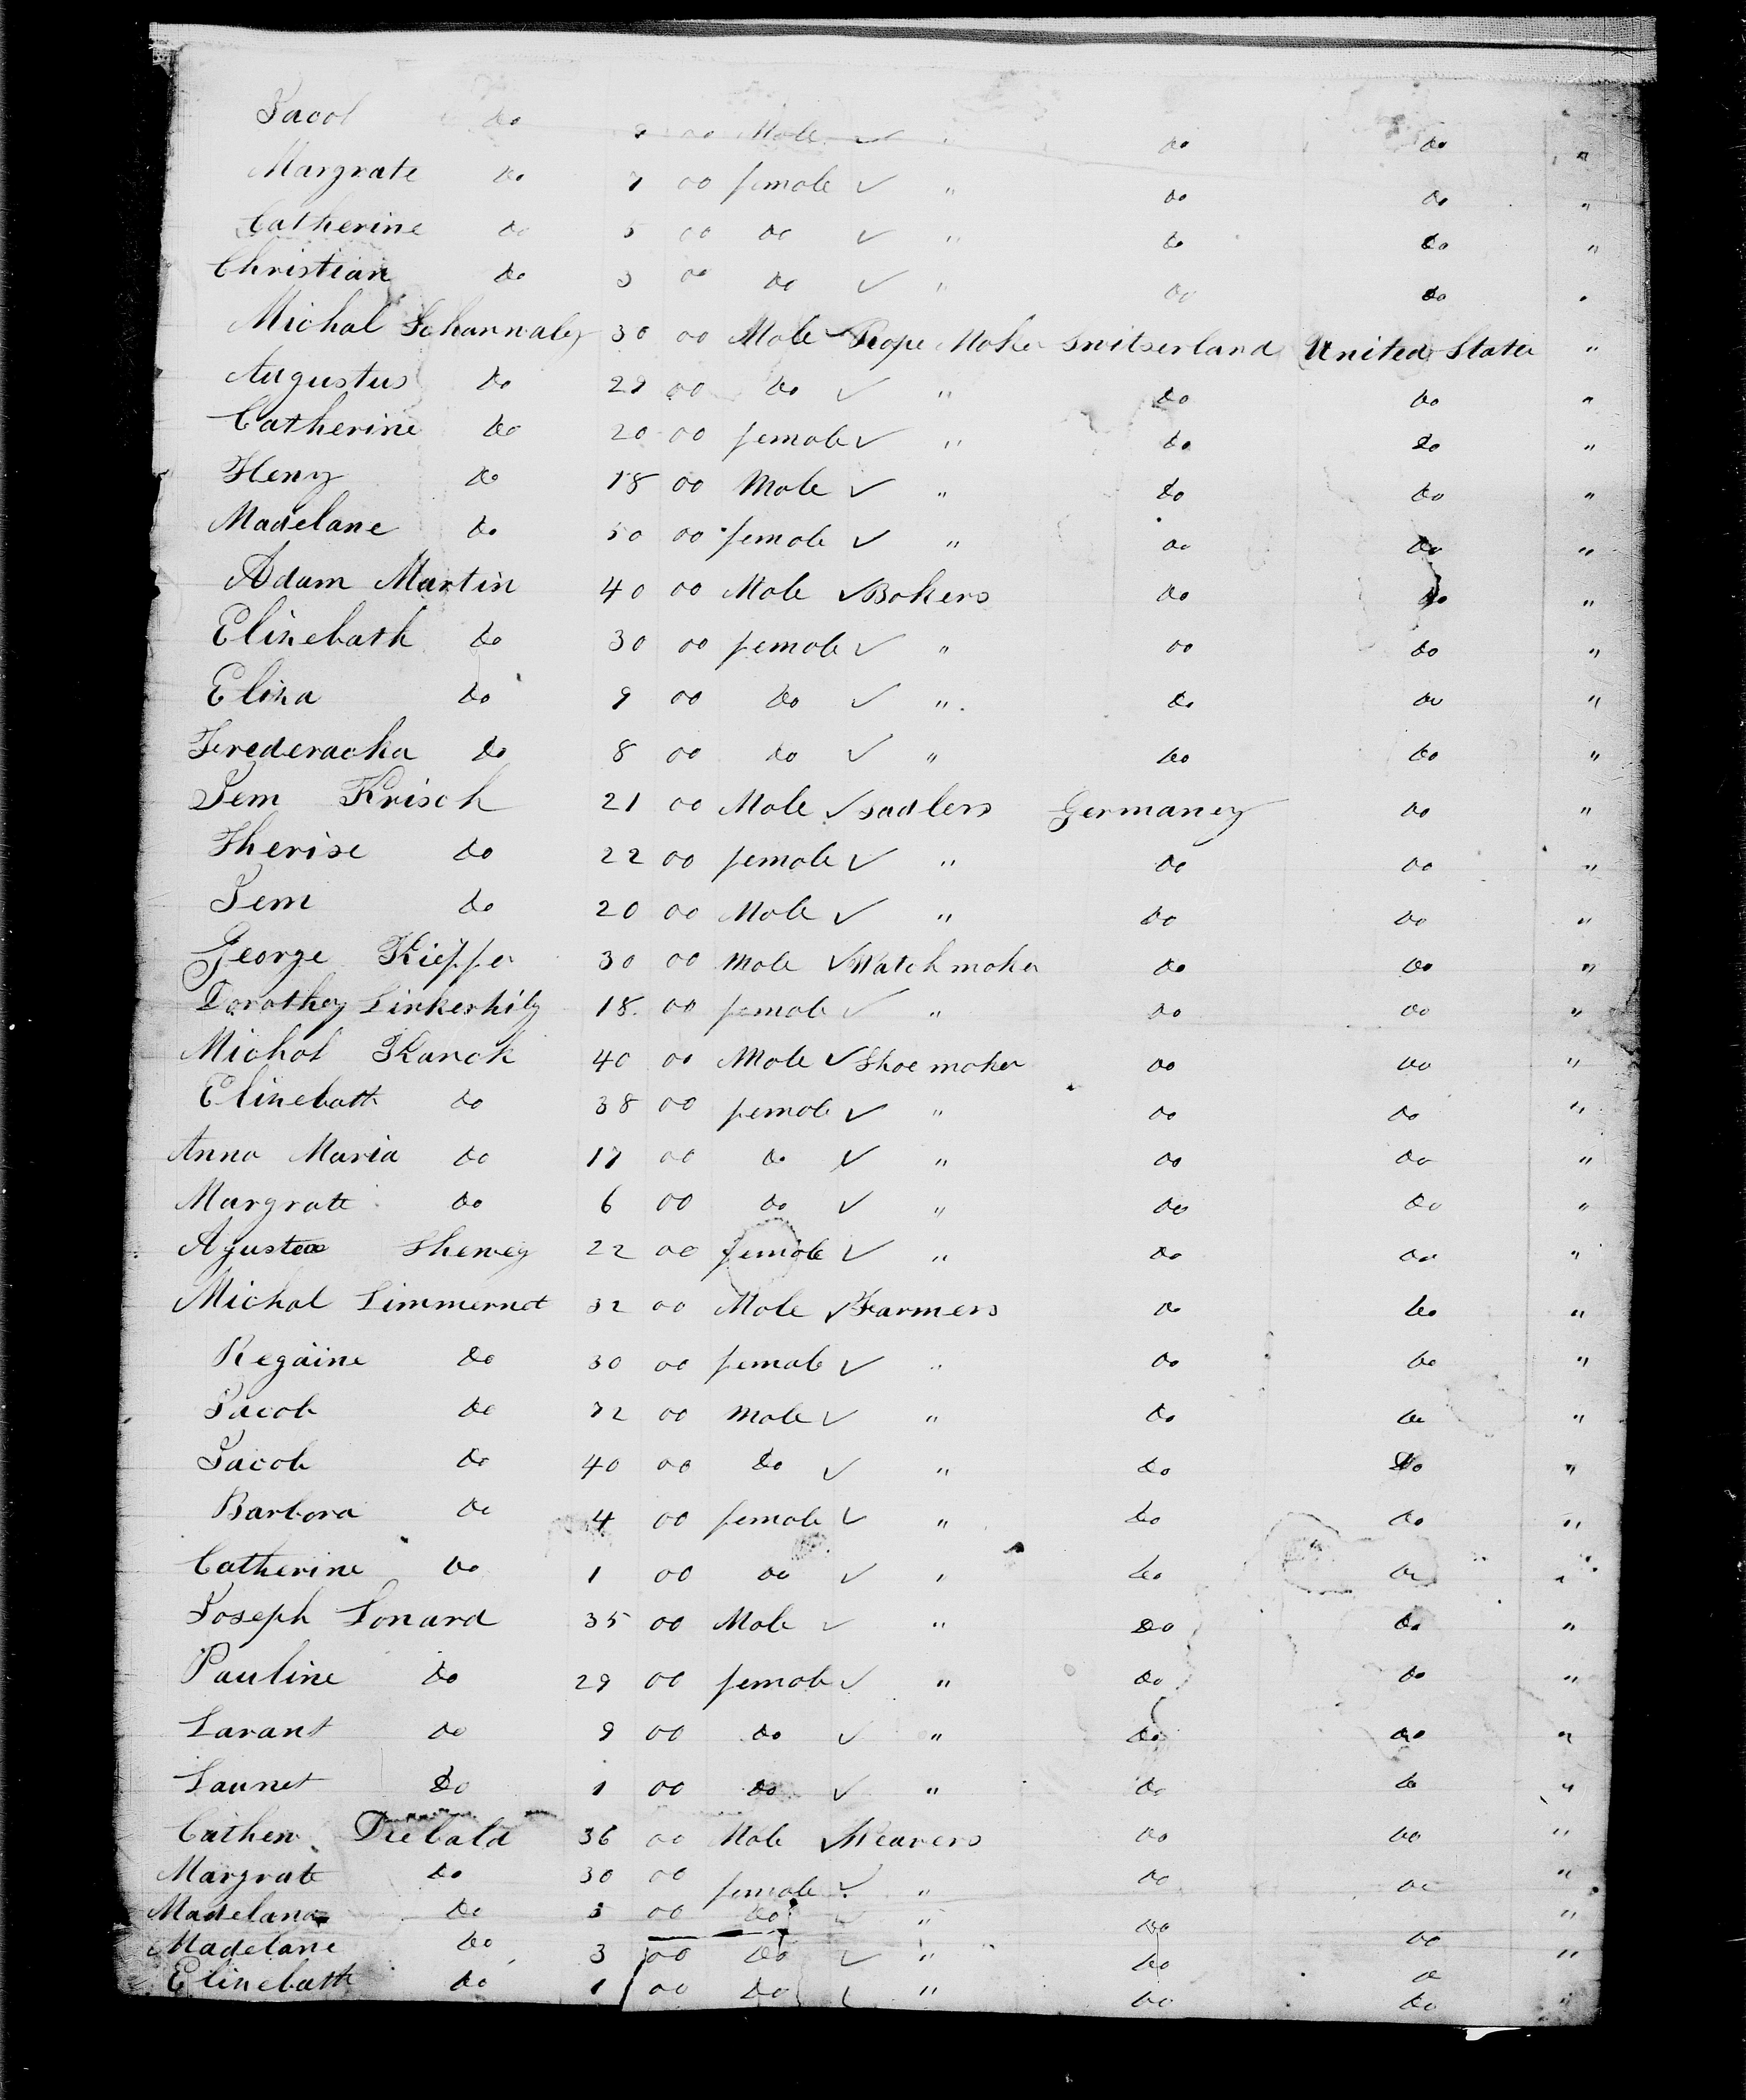 Jacob do 9 00 Male ✓ " do do "
Margrate do 7 00 female ✓ " do do "
Catherine do 5 00 do ✓ " do do "
Christian do 3 00 do ✓ " do do "
Michal 30 00 Male Rope Maker Switserland United States "
Augustus do 29 00 do ✓ " do do "
Catherine do 20 00 female ✓ " do do "
Heny do 18 00 Male ✓ " do do "
Madelane do 50 00 female ✓ " do do "
Adam Martin 40 00 Male ✓ Bakers do do "
Elizebath do 30 00 female ✓ " do do "
Eliza do 9 00 do ✓ " do do "
Frederacka do 8 00 do ✓ " do do "
Jem Krisch 21 00 Male ✓ Sadlers Germaney do "
Therise do 22 00 female ✓ " do do "
Jem do 20 00 Male ✓ " do do "
George Kieffer 30 00 Male ✓ Watchmaker do do "
Dorothey 18 00 female ✓ " do do "
Michal Karck 40 00 Male ✓ Shoemaker do do "
Elizebath do 38 00 female ✓ " do do "
Anna Maria do 17 00 do ✓ " do do "
Margrate do 6 00 do ✓ " do do "
Agusta 22 00 female ✓ " do do "
Michal 32 00 Male ✓ Farmers do do "
Regaine do 30 00 female ✓ " do do "
Jacob do 72 00 Male ✓ " do do "
Jacob do 40 00 do ✓ " do do "
Barbora do 4 00 female ✓ " do do "
Catherine do 1 00 do ✓ " do do "
Joseph Lonard 35 00 Male ✓ " do do "
Pauline do 29 00 female ✓ " do do "
Larant do 9 00 do ✓ " do do "
Launet do 1 00 do ✓ " do do "
Cathen Diebald 36 00 Male ✓ Weavers do do "
Margrate do 30 00 female ✓ " do do "
Madelana do 5 00 do ✓ " do do "
Madelane do 3 00 do ✓ " do do "
Elizebath do 1 00 do ✓ " do do "